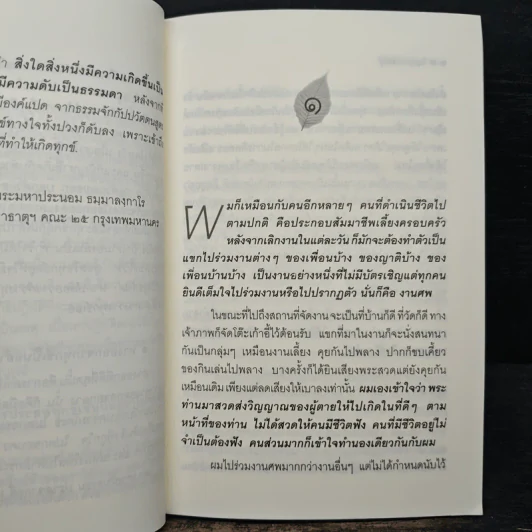 สิ่งใดสิ่งหนึ่งมีความเกิดขึ้นเป็น
มีความดับเป็นธรรมดา หลังจากที่
มีองค์แปด จากธรรมจักกัปปวัตตนสูตร
ทางใจทั้งปวงก็ดับลง เพราะเข้าถึง
ที่ทำให้เกิดทุกข์.
พระมหาประนอม ธมฺมาลงฺกาโร
คณะ ๒๕ กรุงเทพมหานคร
๑
ผมก็เหมือนกับคนอีกหลายๆ คนที่ดำเนินชีวิตไป
ตามปกติ คือประกอบสัมมาชีพเลี้ยงครอบครัว
หลังจากเลิกงานในแต่ละวัน ก็มักจะต้องทำตัวเป็น
แขกไปร่วมงานต่างๆ ของเพื่อนบ้าง ของญาติบ้าง ของ
เพื่อนบ้านบ้าง เป็นงานอย่างหนึ่งที่ไม่มีบัตรเชิญแต่ทุกคน
ยินดีเต็มใจไปร่วมงานหรือไปปรากฏตัว นั่นก็คือ งานศพ
ในขณะที่ไปถึงสถานที่จัดงาน จะเป็นที่บ้านก็ดี ที่วัดก็ดี ทาง
เจ้าภาพก็จัดโต๊ะเก้าอี้ไว้ต้อนรับ แขกที่มาในงานก็จะนั่งสนทนา
กันเป็นกลุ่มๆ เหมือนงานเลี้ยง คุยกันไปพลาง ปากก็ขบเคี้ยว
ของกินเล่นไปพลาง บางครั้งก็ได้ยินเสียงพระสวดแต่ยังคุยกัน
เหมือนเดิม เพียงแต่ลดเสียงให้เบาลงเท่านั้น ผมเองเข้าใจว่า พระ
ท่านมาสวดส่งวิญญาณของผู้ตายให้ไปเกิดในที่ดีๆ ตาม
หน้าที่ของท่าน ไม่ได้สวดให้คนมีชีวิตฟัง คนที่มีชีวิตอยู่ไม่
จำเป็นต้องฟัง คนส่วนมากก็เข้าใจทำนองเดียวกันกับผม
ผมไปร่วมงานศพมากกว่างานอื่นๆ แต่ไม่ได้กำหนดนับไว้